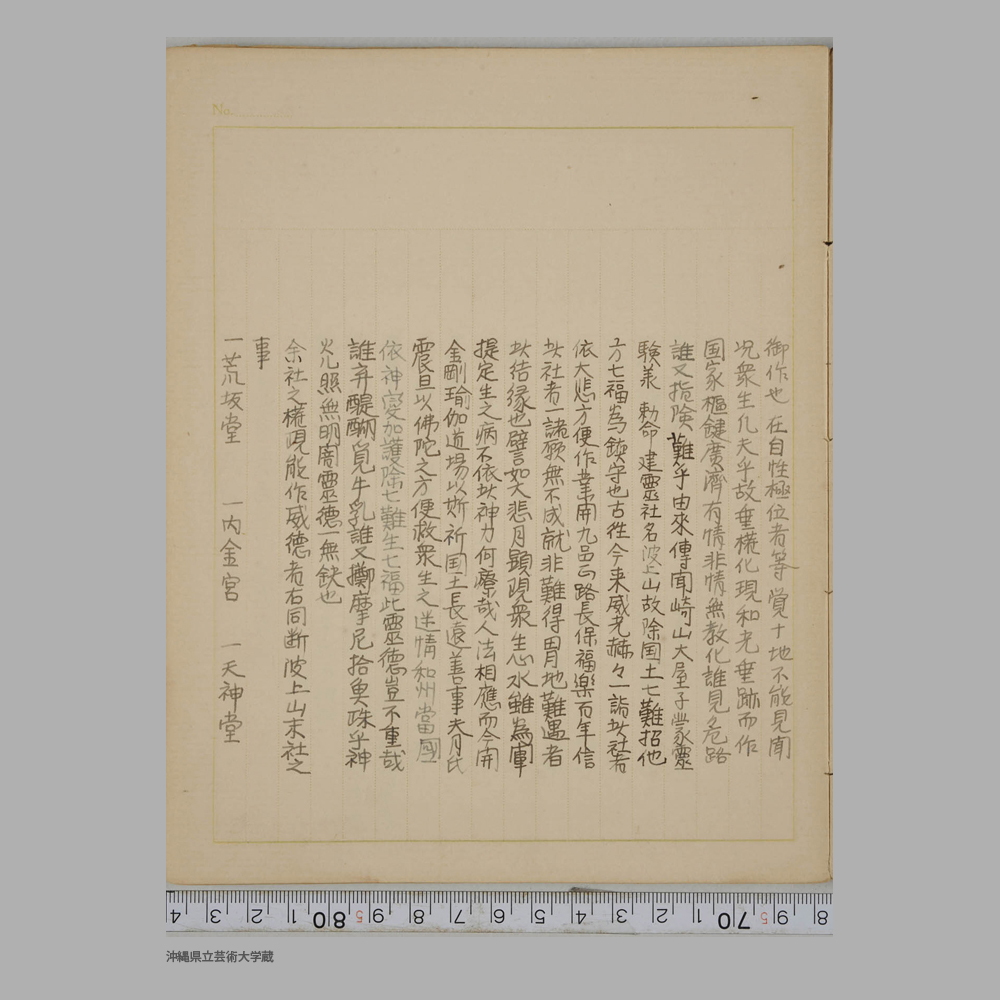 No.
御作也 在自性極位者等覚十地不能見聞
况衆生凡夫乎故垂権化現和光垂跡而作
国家樞鍵廣濟有情非情無教化誰見危路
誰又指険難乎由來傳聞崎山大屋子蒙靈
験美 勅命 建靈社名波上山故除国土七難招他
方七福為鎮守也古徃今来威光赫々一詣此社者
依大悲方便作業開九邑正路長保福樂百年信
此社者一諸願無不成就非難得胃地難遇者
此結縁也譬如大悲月顕現衆生心水雖為軍
提定生之病不依此神力何療哉人法相應而今開
金剛瑜伽道場以斯祈国土長遠善事夫月氏
震旦以佛陀之方便救衆生之迷情和州當國
依神変加護除七難生七福此靈徳豈不重哉
誰弃醍醐覓牛乳誰又擲摩尼拾魚珠乎神
光照無明闇靈徳無缺也
余社之権現能作威徳者右同断波上山末社之
事
一荒坂堂 一内金宮 一天神堂
8 9 5 70 1 2 3 4 5 6 7 8 9 5 80 1 2 3 4
沖縄県立芸術大学蔵